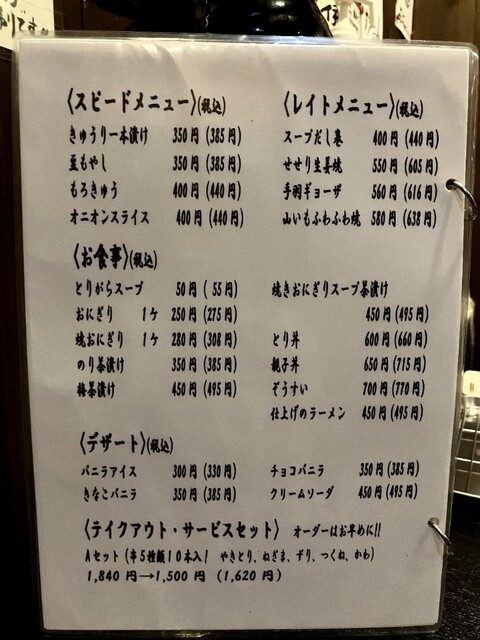 〈スピードメニュー〉(税込)
きゅうり一本漬け 350円(385円)
豆もやし 350円(385円)
もろきゅう 400円(440円)
オニオンスライス 400円(440円)
〈レイトメニュー〉(税込)
スープだし巻 400円(440円)
せせり生姜焼 550円(605円)
手羽ギョーザ 560円(616円)
山いもふわふわ焼 580円(638円)
〈お食事〉(税込)
とりがらスープ 50円( 55円)
おにぎり 1ヶ 250円(275円)
焼おにぎり 1ヶ 280円(308円)
のり茶漬け 350円(385円)
梅茶漬け 450円(495円)
焼きおにぎりスープ茶漬け
450円(495円)
とり丼 600円(660円)
親子丼 650円(715円)
ぞうすい 700円(770円)
仕上げのラーメン 450円(495円)
〈デザート〉(税込)
バニラアイス 300円(330円)
きなこバニラ 350円(385円)
チョコバニラ 350円(385円)
クリームソーダ 450円(495円)
〈テイクアウト・サービスセット〉 オーダーはお早めに!!
Aセット(串5種類10本入! やきとり、ねぎま、ずり、つくね、かわ)
1,840円→1,500円 (1,620円)